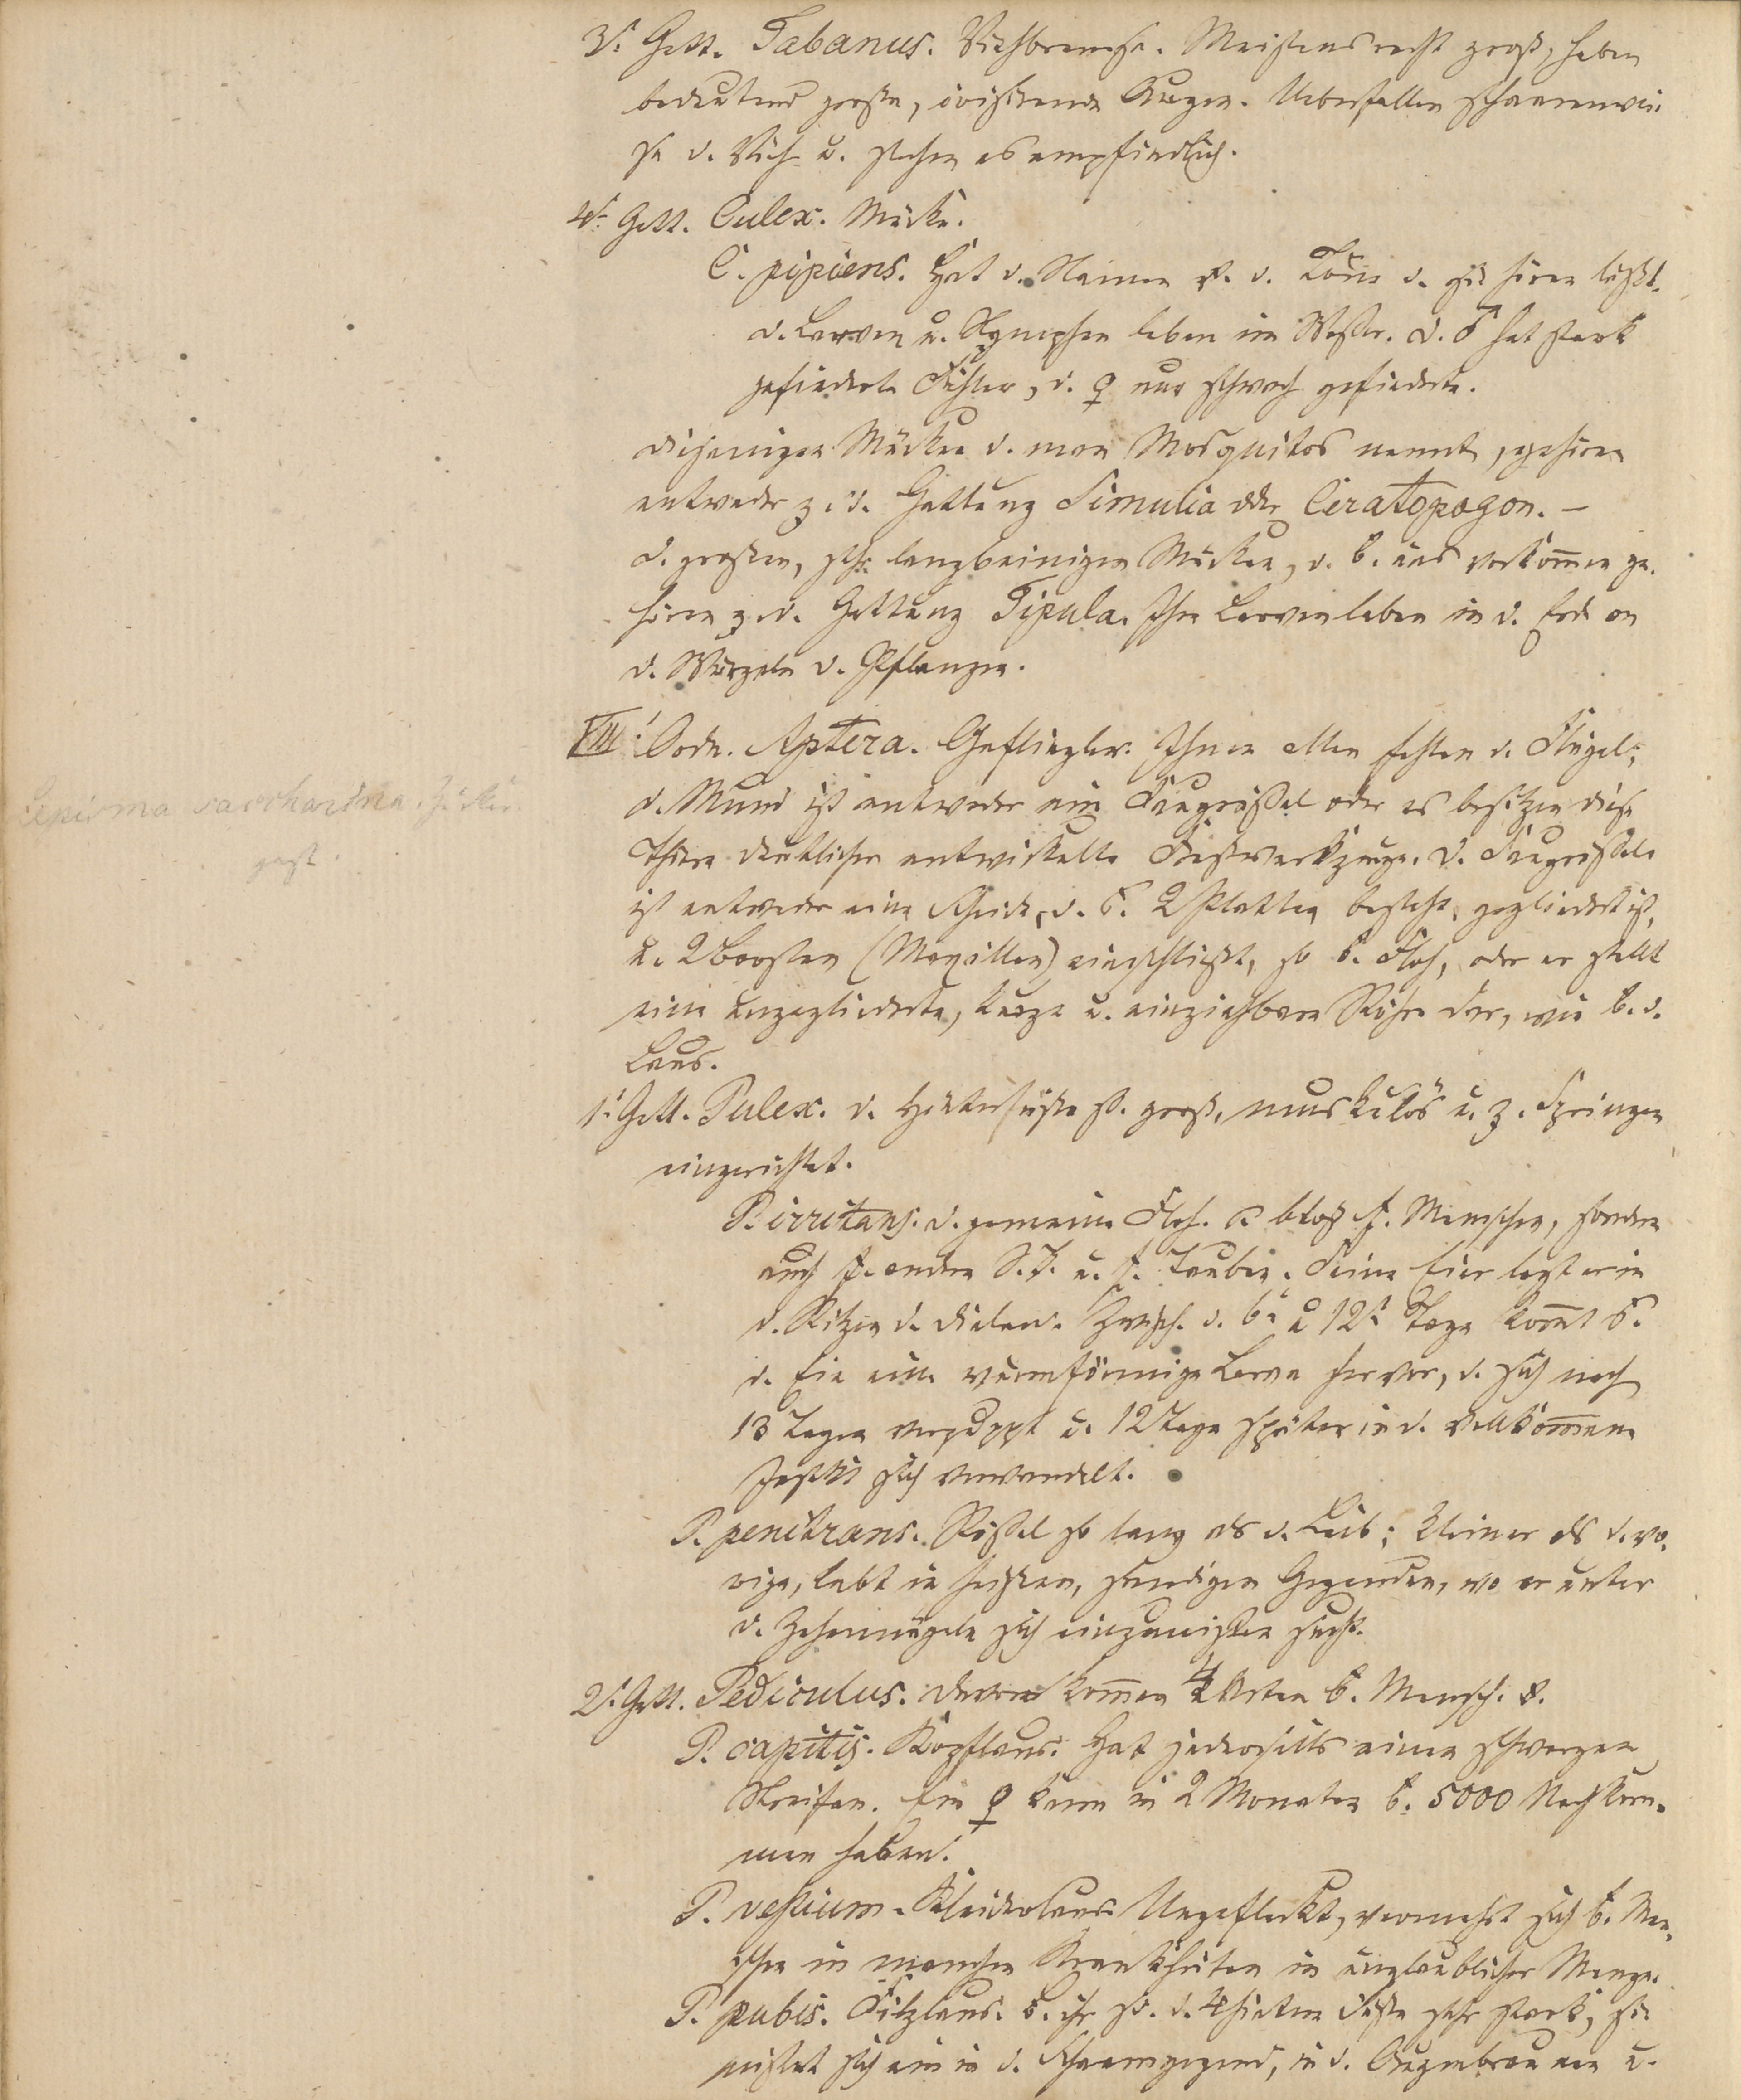 3t. Gatt. Tabanus. Viehbremse. Meistens recht groß, haben
bedeutend große, irisirende Augen. Ueberfallen schaarenwei-
se d. Vieh u. stechen es empfindlich.
4t. Gatt. Culex. Mücke.
C. pipiens. Hat d. Namen v. d. Töne d. sie hören läßt.
d. Larven u. Nymphen leben im Wasser. D. ♂ hat stark
gefiederte Fühler, d. ♀ nur schwach gefiederte.
diejenigen Mücken d. man Mosquitos nennt, gehören
entweder z. d. Gattung Simulia oder Ceratopogon. –
d. großen, sehr langbeinigen Mücken, d. b. uns vorkom̅en ge-
hören z. d. Gattung Tipula. Ihre Larven leben in d. Erde an
d. Wurzeln d. Pflanzen.
VIII. Ordn. Aptera. Ihnen allen fehlen d. Flügel;
d. Mund ist entweder ein Saugrüssel oder es besitzen diese
Thiere deutlicher entwickelte Freßwerkzeuge. D. Saugrüssel
ist entweder eine Scheide, d. 2 Platten besteht, gegliedert ist,
u. 2 Borsten (Maxillen) einschließt, so b. Floh, oder er stellt
eine ungegliederte, kurze u. einziehbare Röhre dar, wie b. d.
Laus.
1t. Gatt. Pulex. d. Hinterfüße s. groß, muskulös u. z. Springen
eingerichtet.
P. irritans. d. gemeine Floh. bloß f. Menschen, sondern
auch f. andern S.T. u. f. Tauben. Seine Eier legt er in
d. Ritzen d. Dielen. Zwisch. d. 6t u 12t Tage kom̅t
d. Eie eine wurmförmige Larve hervor, d. sich nach
13 Tagen verpuppt u. 12 Tage später in d. vollkom̅ene
Insekt sich verwandelt.
P. penetrans. Rüssel so lang als d. Leib; kleiner als d. vo-
rige, lebt in heißen, sandigen Gegenden, wo er unter
d. Zehennägeln sich einzunisten sucht.
2t. Gatt. Pediculus. Davon kom̅en 4 Arten b. Mensch. v.
P. capitis. Kopflaus. Hat jederseits einen schwarzen
Streifen. Ein ♀ kann in 2 Monaten b. 5000 Nachkom-
men haben.
P. vestium. Kleiderlaus. Ungefleckt, vermehrt sich b. Men-
schen in manchen Krankheiten in unglaublicher Menge.
P. pubis. Filzlaus. b. ihr s. d. 4 hintern Füße sehr stark, sie
nistet sich ein in d. Schaamgegend, in d. Augenbrauen u.
Lepisma saccharina. Zucker-
gast.